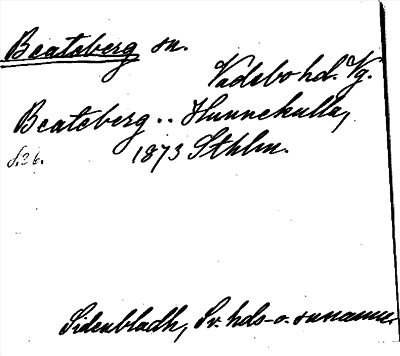 Beateberg sn.
Vadsbo hd. Vg.
Beateberg .. Hunnekulla,
s. 26. 1873 Sthlm.
Sidenbladh, Sv. hds- o. snnamn.